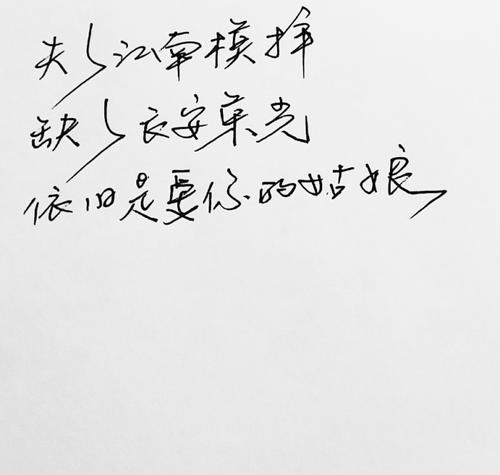 失了江南模样
缺了长安荣光
依旧是爱你的姑娘